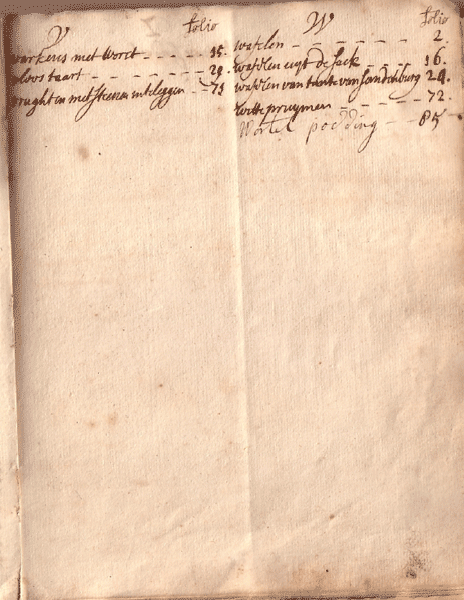 V folio
varkens met Worst 15.
vloos taart 29
vrughten met steenen inteleggen 71
W folio
wafelen 2.
wafelen uijt de sack 16.
wafelen van tante van sandenburg 24.
witte pruijmen 72
Wortel podding 85